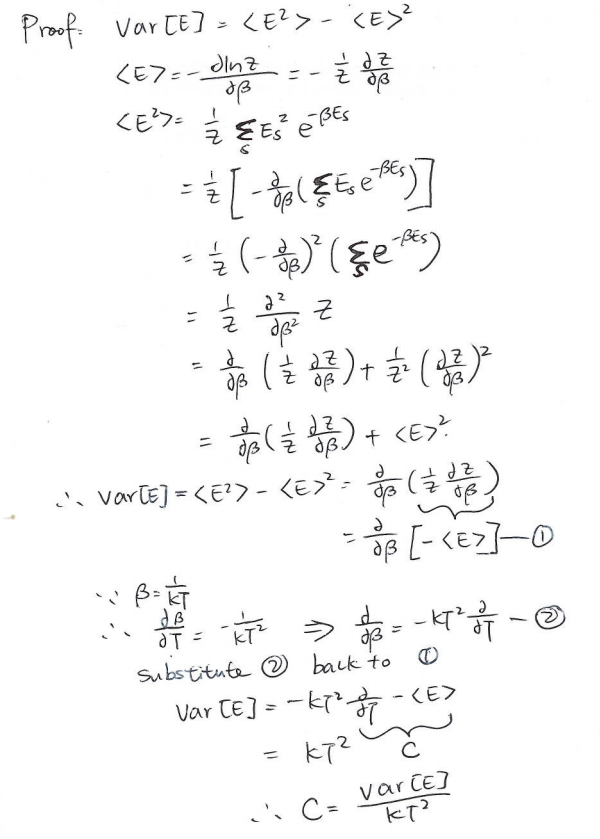 Proof: Var[E] = <E²> - <E>²
<E> = - ∂lnZ/∂β = - 1/Z ∂Z/∂β
<E²> = 1/Z Σ_s E_s² e^(-βE_s)
= 1/Z [ - ∂/∂β ( Σ_s E_s e^(-βE_s) ) ]
= 1/Z ( - ∂/∂β )² ( Σ_s e^(-βE_s) )
= 1/Z ∂²/∂β² Z
= ∂/∂β ( 1/Z ∂Z/∂β ) + 1/Z² ( ∂Z/∂β )²
= ∂/∂β ( 1/Z ∂Z/∂β ) + <E>².
∴ Var[E] = <E²> - <E>² = ∂/∂β ( 1/Z ∂Z/∂β )
= ∂/∂β [ - <E> ] — ①
∵ β = 1/kT
∴ ∂β/∂T = - 1/kT² ⇒ ∂/∂β = - kT² ∂/∂T — ②
substitute ② back to ①
Var[E] = - kT² ∂/∂T - <E>
= kT² C
∴ C = Var[E]/kT²